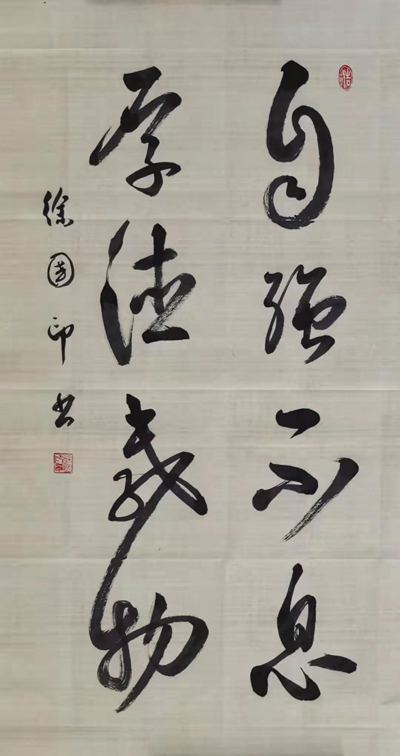 自强不息
厚德载物
徐国印书